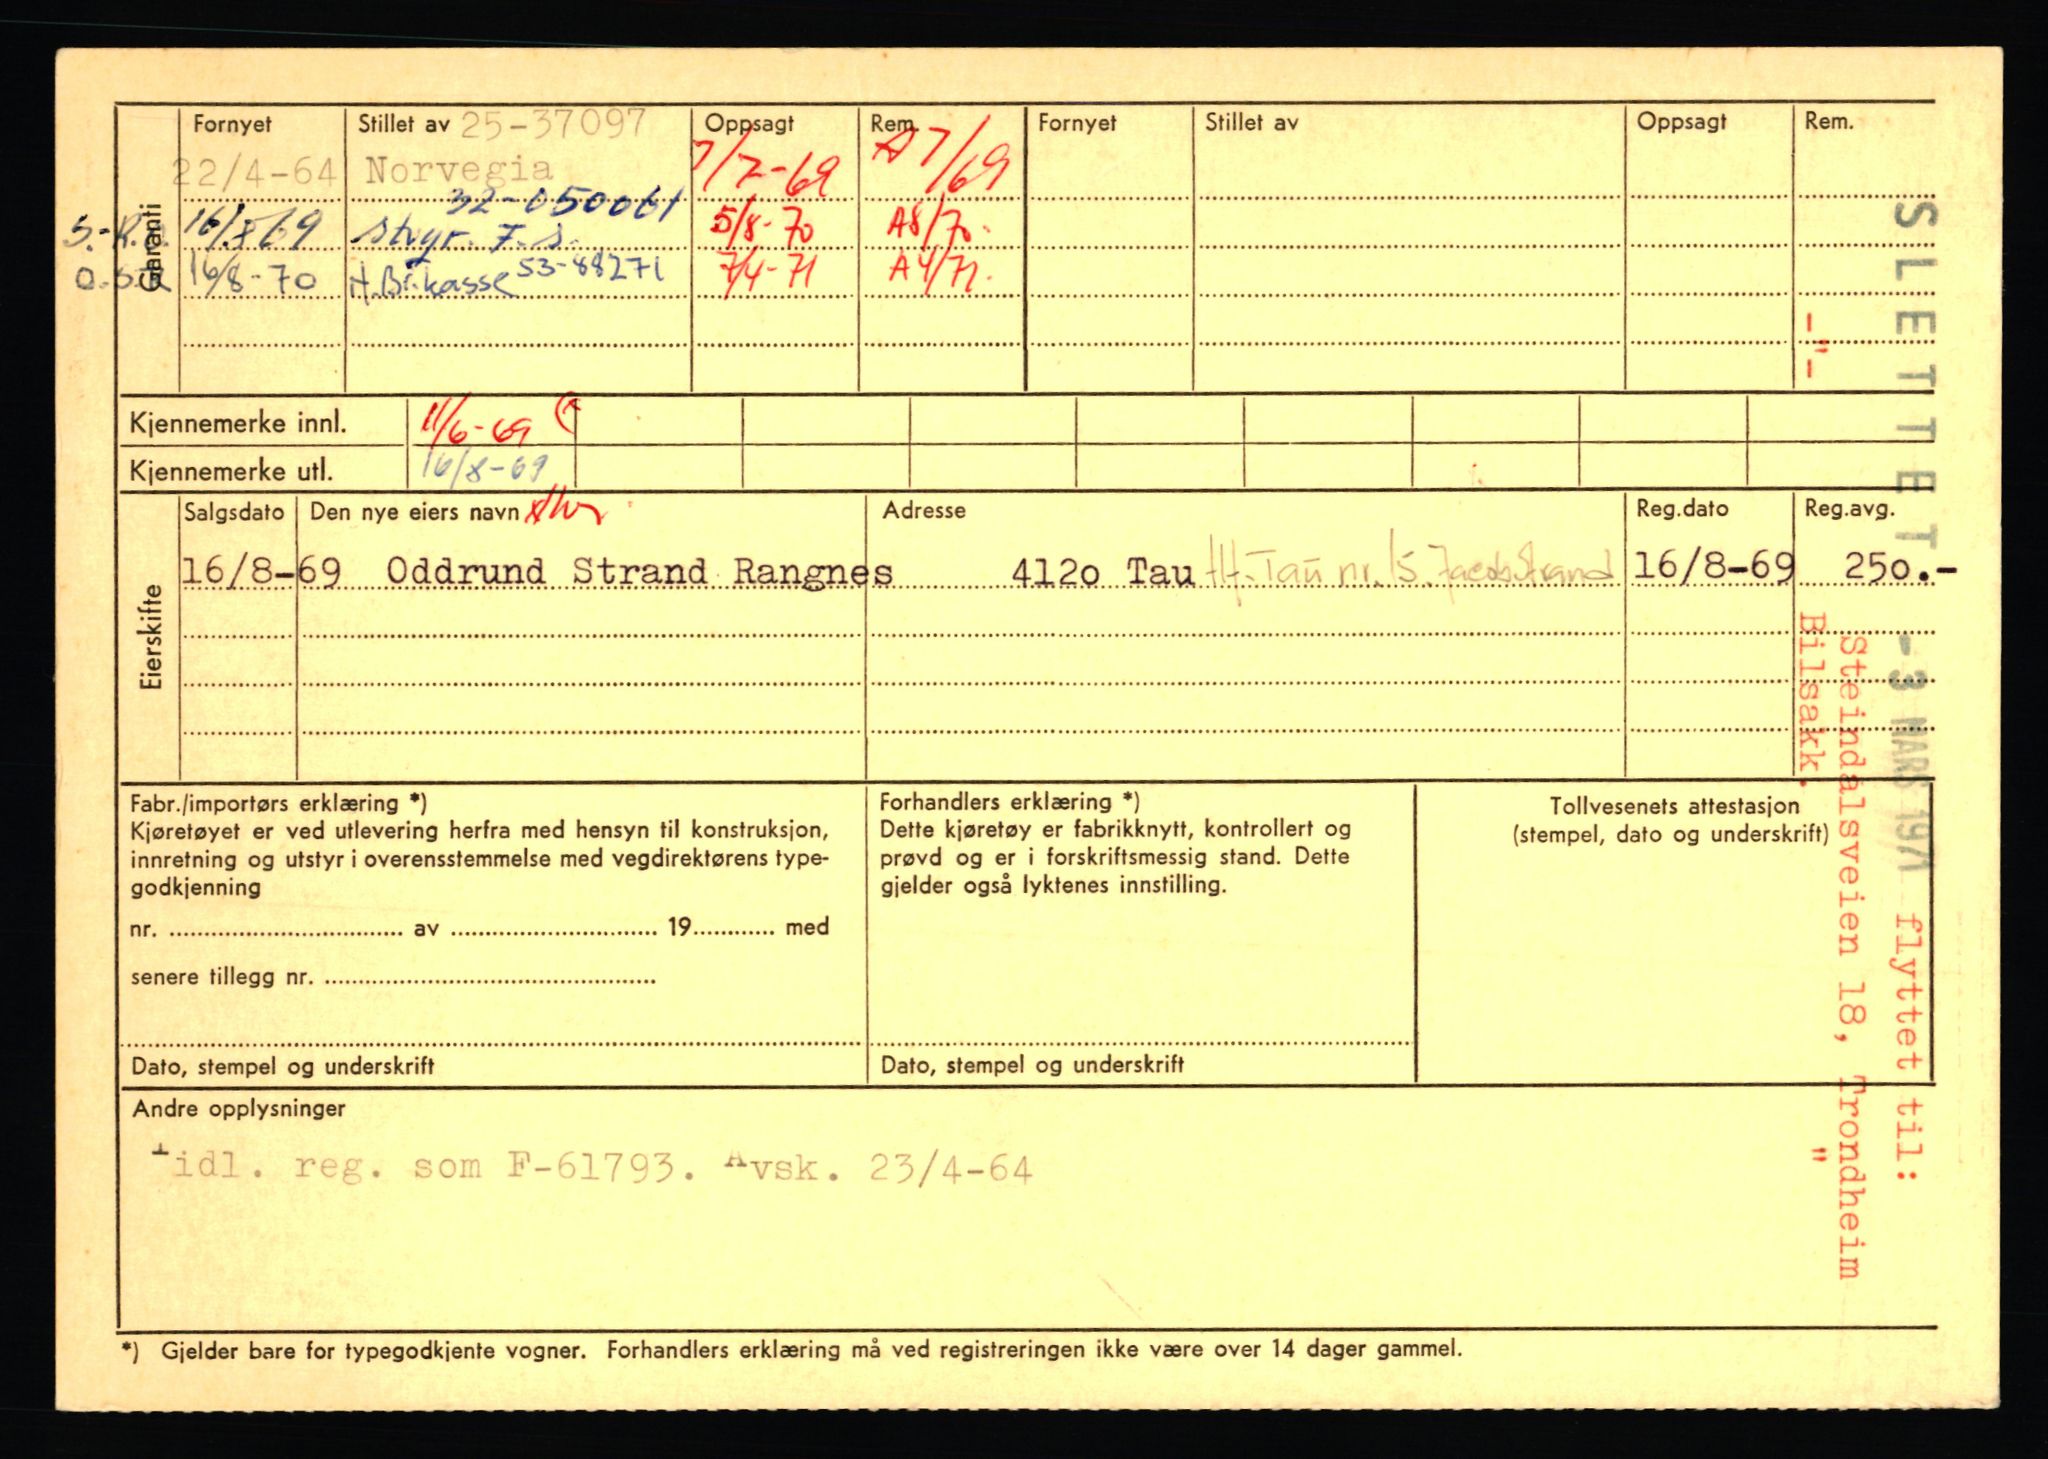 Garanti
Fornyet Stillet av 25-37097 Oppsagt Rem. Fornyet Stillet av Oppsagt Rem.
22/4-64 Norvegia 7/7-69 A7/69
32-050061
16/8 69 Styr. F. s. 5/8-70 A8/70.
16/8-70 H.Br.kasse 53-88271 7/4-71 A4/71.
Kjennemerke innl. 11/6-69
Kjennemerke utl. 16/8-69
Eierskifte
Salgsdato Den nye eiers navn Adresse Reg.dato Reg.avg.
16/8-69 Oddrund Strand Rangnes 4120 Tau H.Tau nr. 15. Jacob Strand 16/8-69 250.-
Fabr./importørs erklæring *)
Kjøretøyet er ved utlevering herfra med hensyn til konstruksjon,
innretning og utstyr i overensstemmelse med vegdirektørens type-
godkjenning
nr. av 19 med
senere tillegg nr.
Dato, stempel og underskrift
Forhandlers erklæring *)
Dette kjøretøy er fabrikknytt, kontrollert og
prøvd og er i forskriftsmessig stand. Dette
gjelder også lyktenes innstilling.
Dato, stempel og underskrift
Tollvesenets attestasjon
(stempel, dato og underskrift)
Andre opplysninger
Tidl. reg. som F-61793. Avsk. 23/4-64
*) Gjelder bare for typegodkjente vogner. Forhandlers erklæring må ved registreringen ikke være over 14 dager gammel.
SLETTET -3 MARS 1971 flyttet til:
Steindalsveien 18, Trondheim
-"- Bilsakk. "